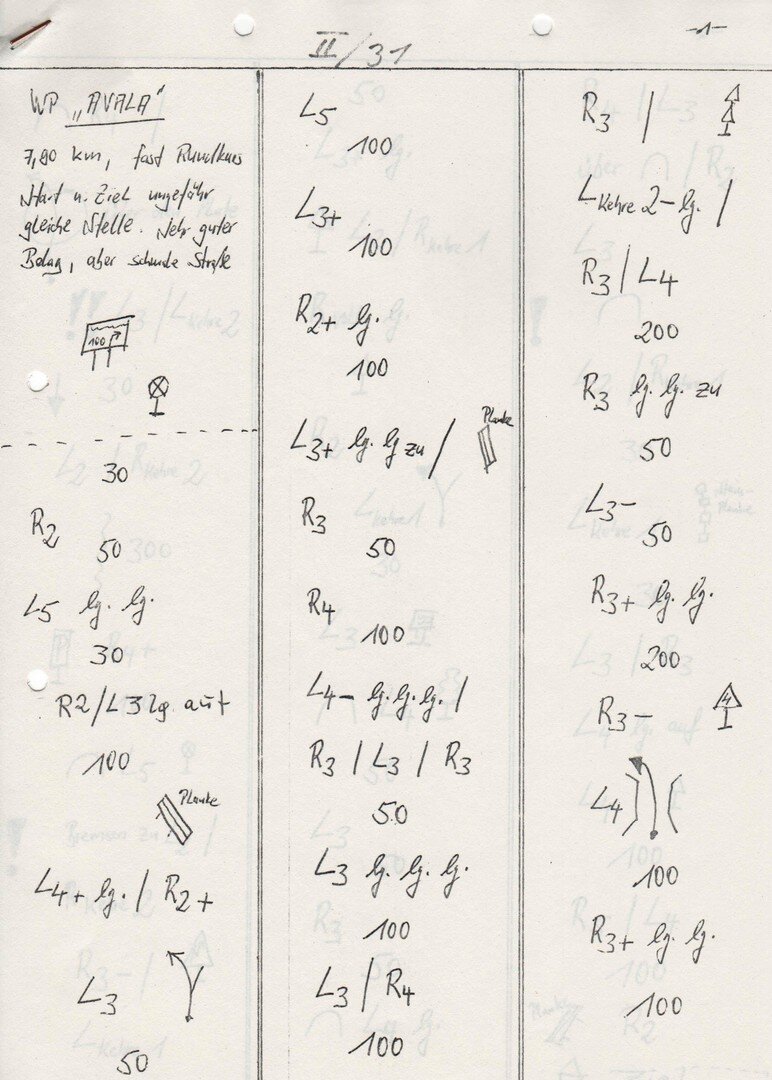 II/31
-1-
WP „AVALA"
7,90 km, fast Rundkurs
Start u. Ziel ungefähr
gleiche Stelle. Sehr guter
Belag, aber schmale Straße
100
30
R2
50
L5 lg. lg.
30
R2/L3 lg. auf
100
Planke
L4+ lg. / R2+
L3
50
L5
100
L3+
100
R2+ lg.
100
L3+ lg. lg zu / Planke
R3
50
R4
100
L4- lg. lg. lg. /
R3 / L3 / R3
50
L3 lg. lg. lg.
100
L3 / R4
100
R3 /
LKehre 2- lg. /
R3 / L4
200
R3 lg. lg. zu
50
L3-
50
R3+ lg. lg.
200
R3-
L4
100
R3+ lg. lg.
100